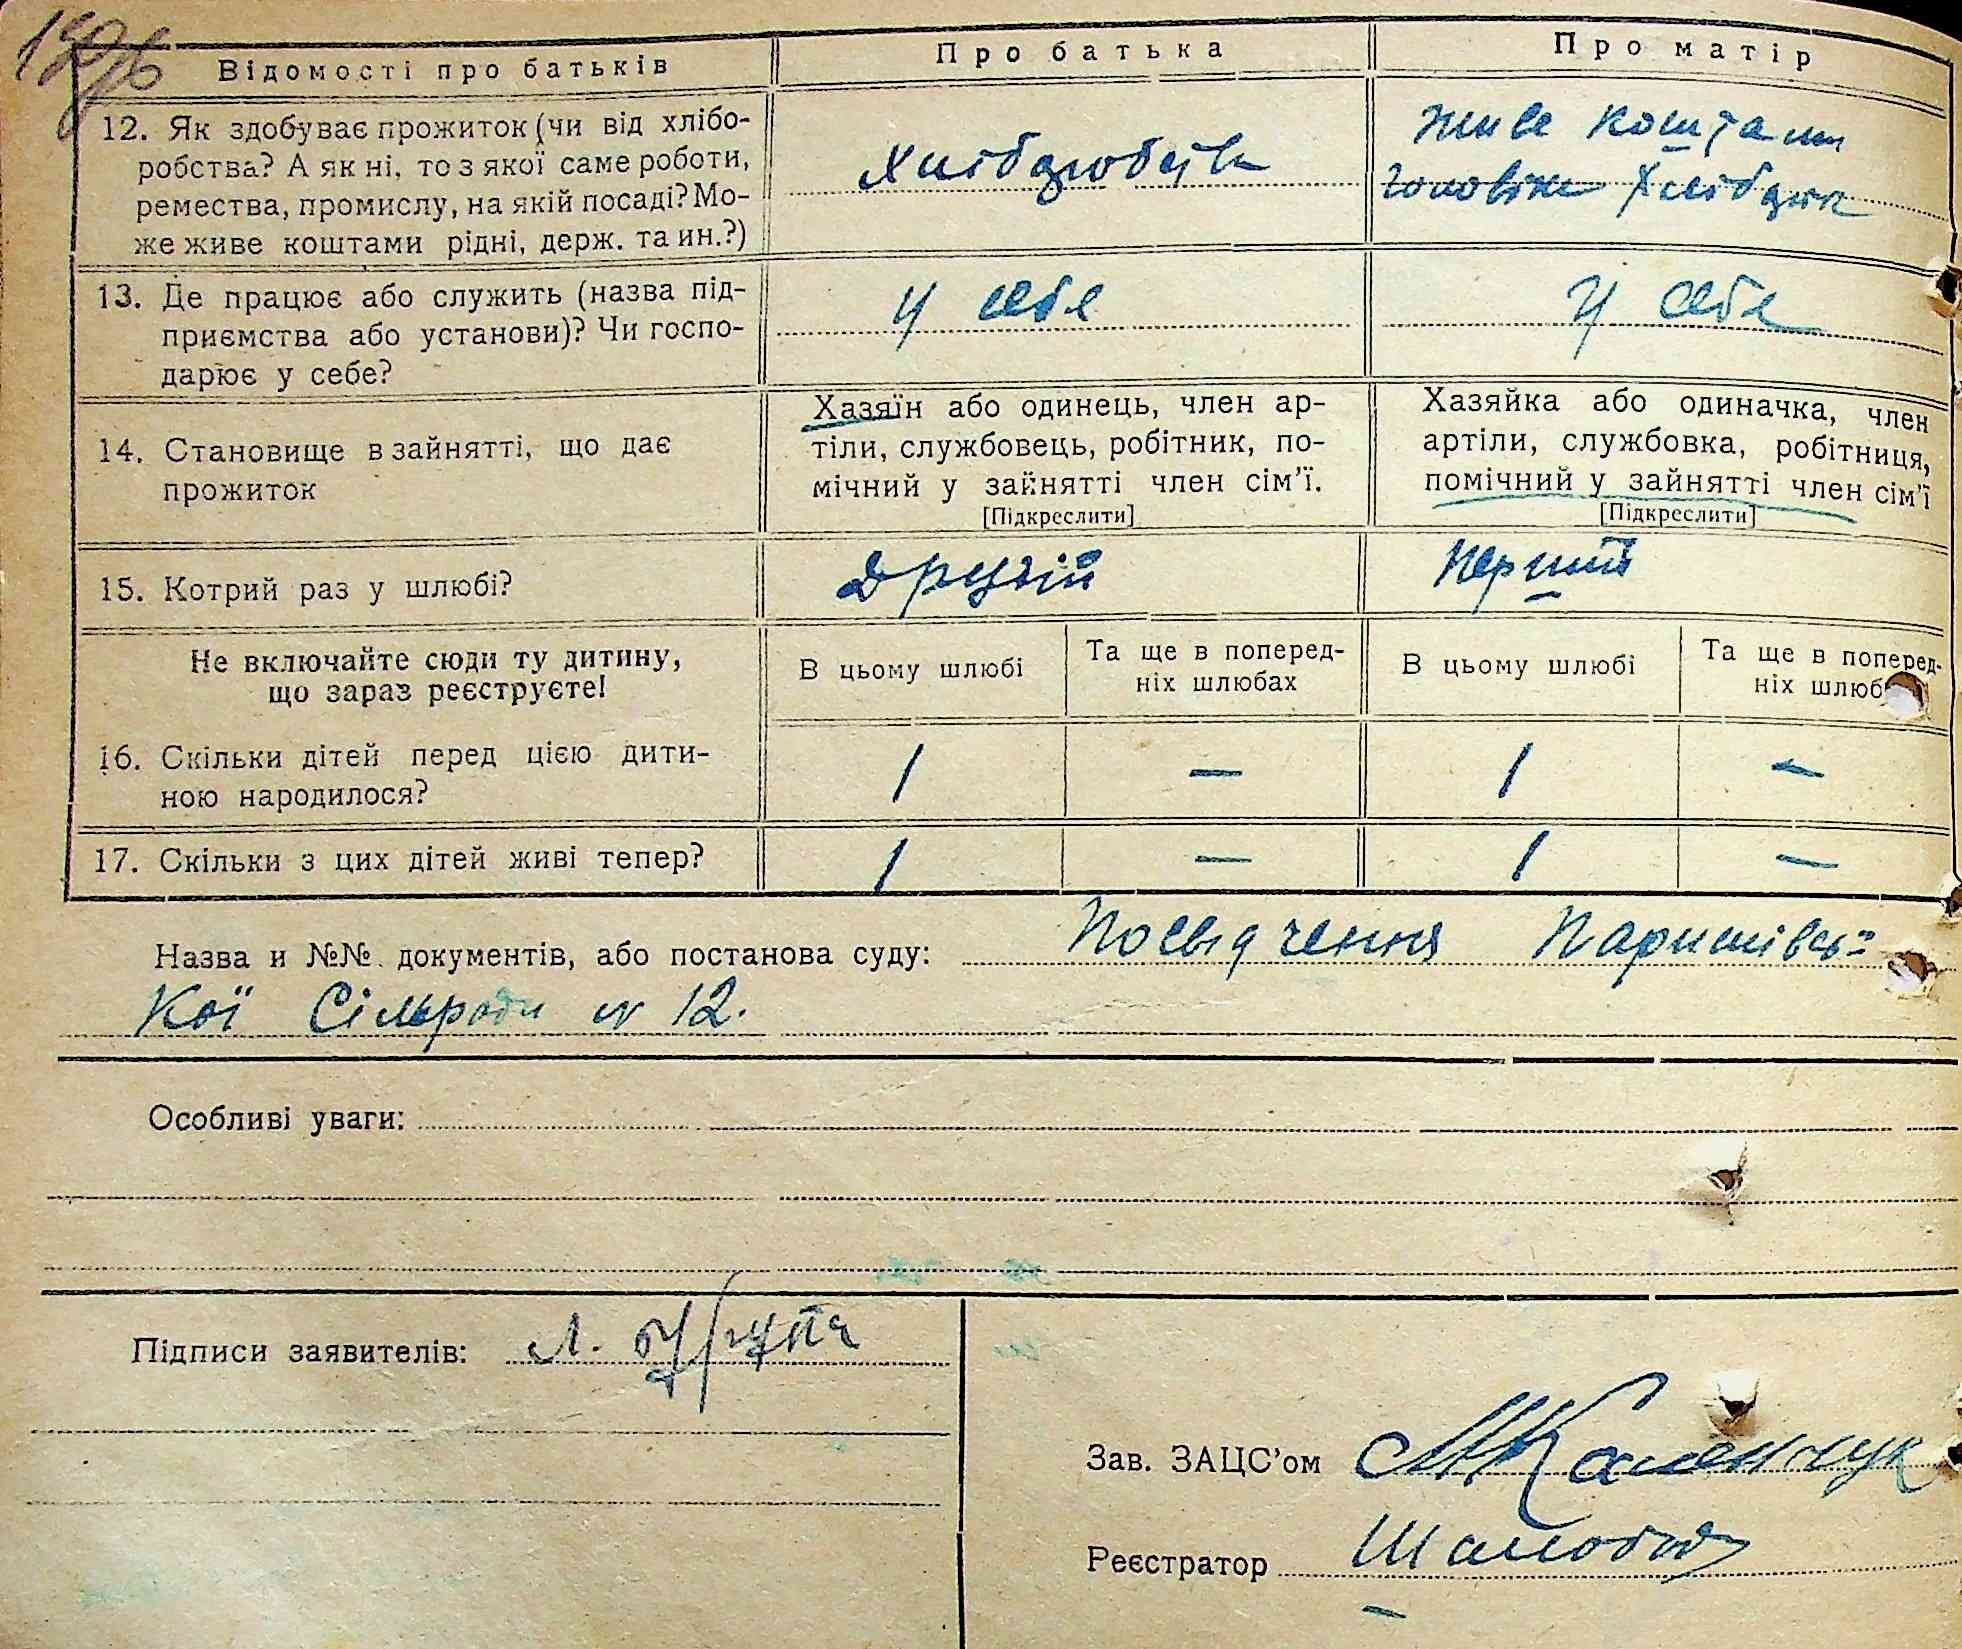 Відомості про батьків
Про батька
Про матір
12. Як здобуває прожиток (чи від хлібо-
робства? А як ні, то з якої саме роботи,
ремества, промислу, на якій посаді? Мо-
же живе коштами рідні, держ. та ин.?)
Хлібороб
живе коштами
чоловіка Хлібороб
13. Де працює або служить (назва під-
приємства або установи)? Чи госпо-
дарює у себе?
у себе
у себе
14. Становище в зайнятті, що дає
прожиток
Хазяїн або одинець, член ар-
тіли, службовець, робітник, по-
мічний у зайнятті член сім'ї.
[Підкреслити]
Хазяйка або одиначка, член
артіли, службовка, робітниця,
помічний у зайнятті член сім'ї
[Підкреслити]
15. Котрий раз у шлюбі?
Другий
Перший
Не включайте сюди ту дитину,
що зараз реєструєте!
В цьому шлюбі
Та ще в поперед-
ніх шлюбах
В цьому шлюбі
Та ще в поперед-
ніх шлюб
16. Скільки дітей перед цією дити-
ною народилося?
1 — 1 —
17. Скільки з цих дітей живі тепер?
1 — 1 —
Назва и №№ документів, або постанова суду: Посвідчення Паришівсь=
кої Сільради № 12.
Особливі уваги:
Підписи заявителів: Л.
Зав. ЗАЦС'ом МКаленчук
Реєстратор